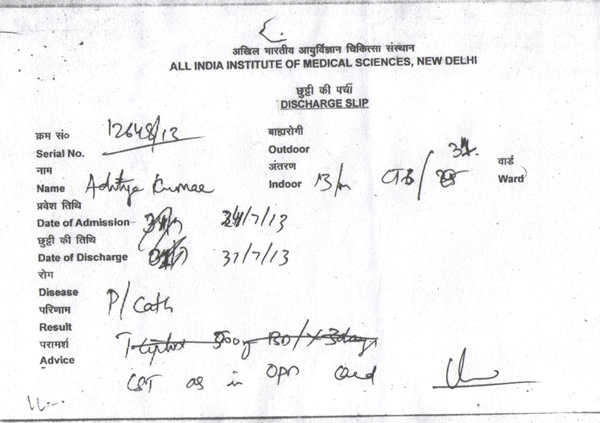 अखिल भारतीय आयुर्विज्ञान चिकित्सा संस्थान
ALL INDIA INSTITUTE OF MEDICAL SCIENCES, NEW DELHI
छुट्टी की पर्ची
DISCHARGE SLIP
क्रम सं० 12648/13 बाह्यरोगी
Serial No. Outdoor
नाम अंतरण वार्ड
Name Aditya Kumar Indoor 13/m CTB/ 31. Ward
प्रवेश तिथि
Date of Admission 31/7/13
छुट्टी की तिथि
Date of Discharge 31/7/13
रोग
Disease
परिणाम P/Cath
Result
परामर्श
Advice
CST as in OPD card